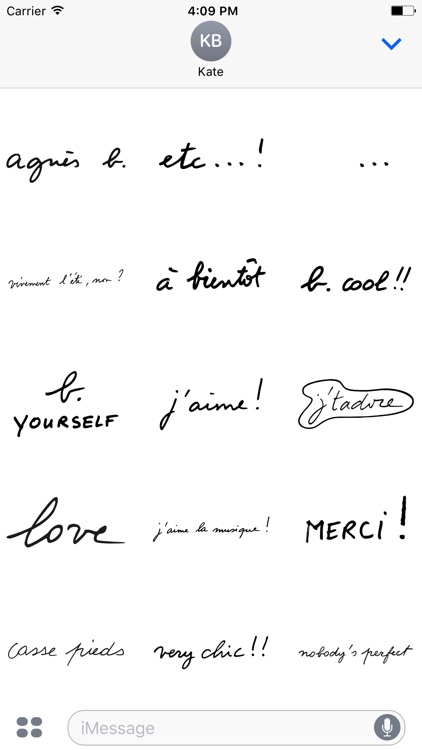 Carrier 4:09 PM
KB
Kate
agnès b. etc...! ...
vivement l'été, non ? à bientôt b. cool!!
b. YOURSELF j'aime! j't'adore
love j'aime la musique ! MERCI!
casse pieds very chic!! nobody's perfect
iMessage